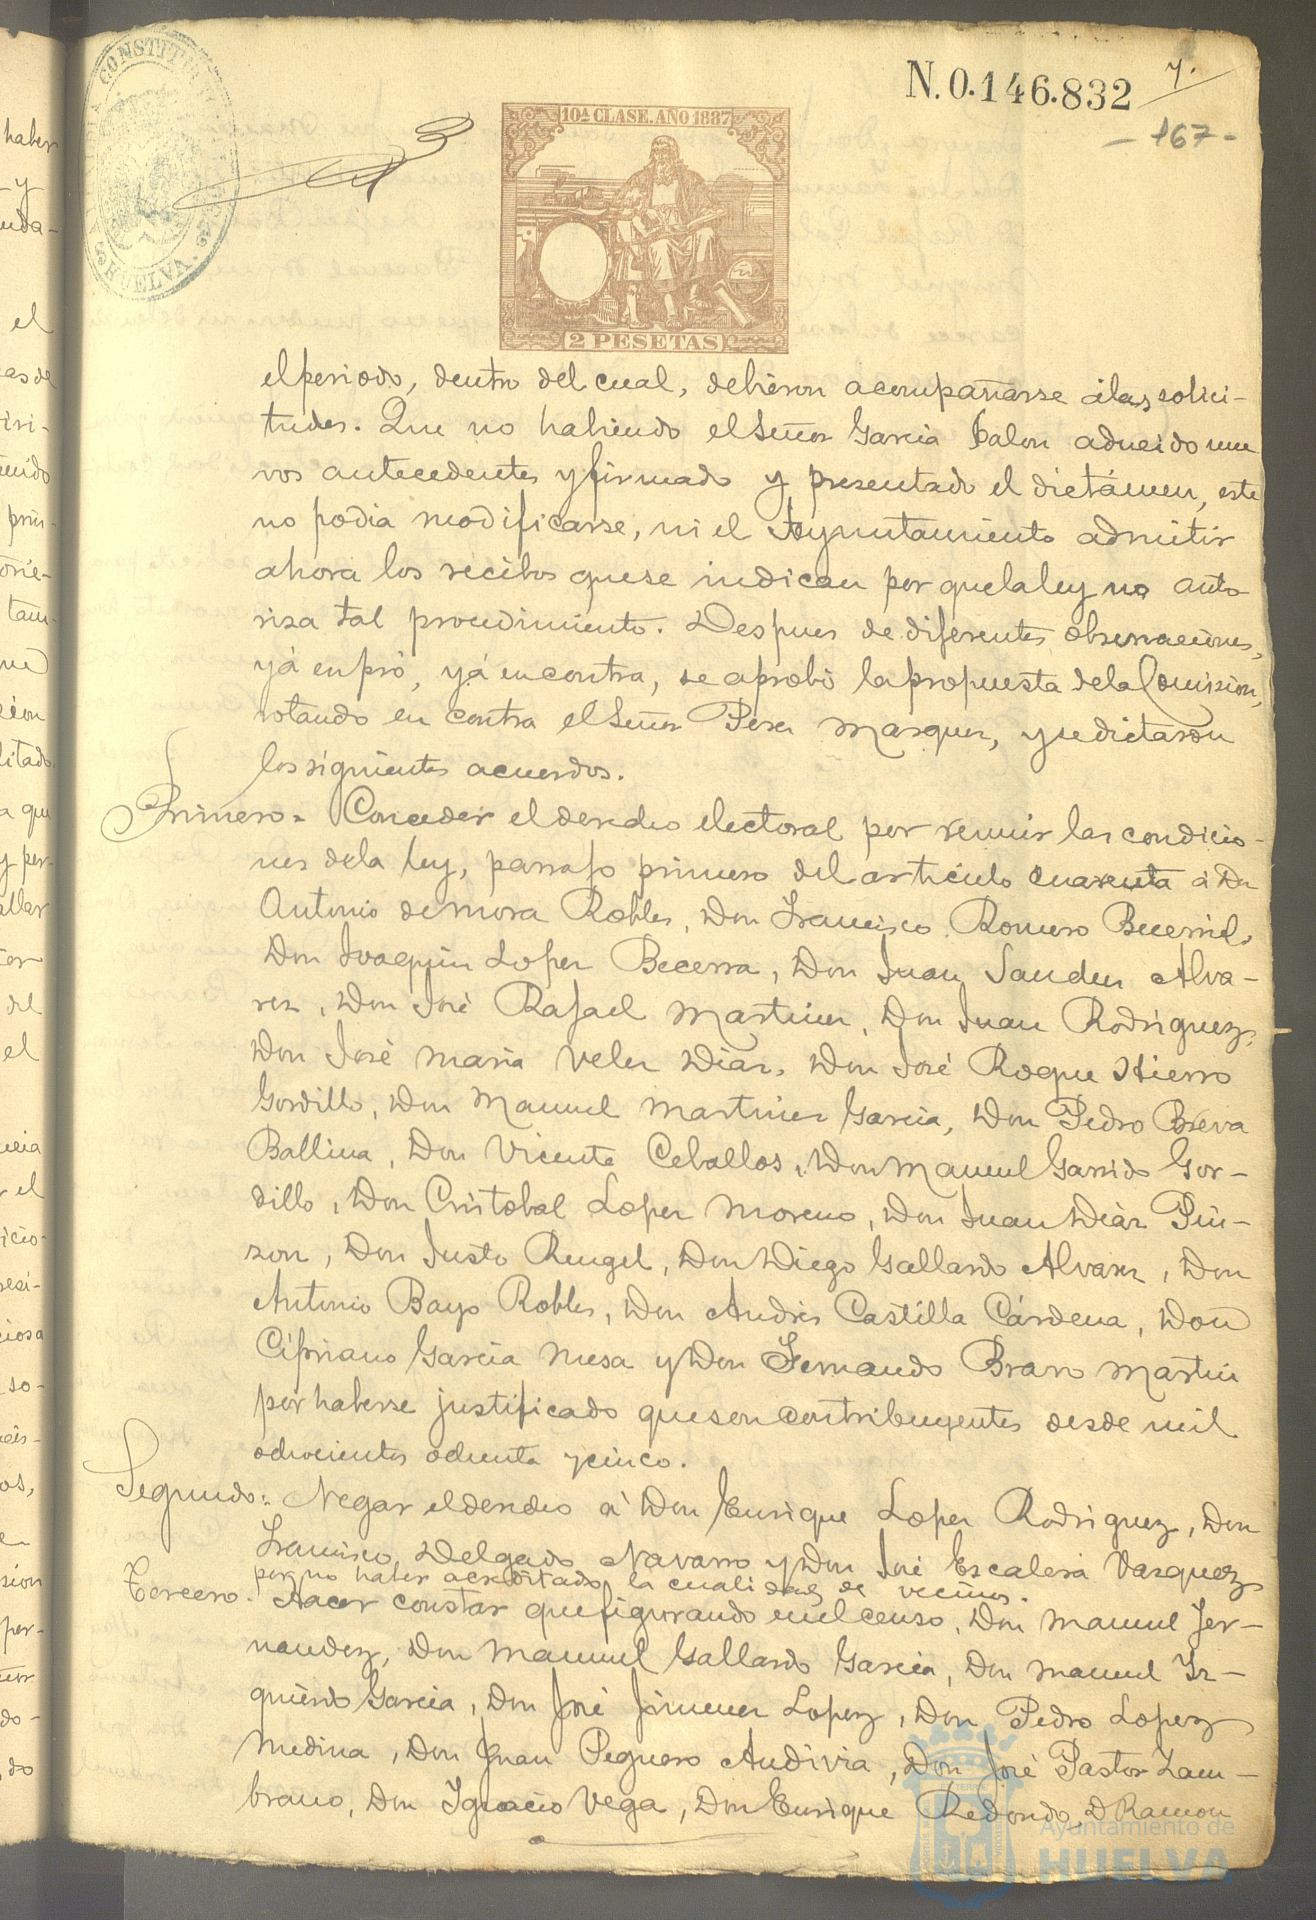 N. 0.146.832
7.
- 167 -
CONSTITU
HUELVA.
10A CLASE. AÑO 1887
2 PESETAS
el periodo, dentro del cual, debieron acompañarse á las solici-
tudes. Que no habiendo el Señor Garcia Jalon aducido nue
vos antecedentes y firmado y presentado el dictámen, este
no podia modificarse, ni el Ayuntamiento admitir
ahora los recibos que se indican por que la ley no auto
riza tal procedimiento. Despues de diferentes observaciones,
yá en pró, yá en contra, se aprobó la propuesta de la Comision,
votando en contra el Señor Perez Marquez, y se dictaron
los siguientes acuerdos.
Primero. Conceder el derecho electoral por reunir las condicio-
nes de la ley, parrafo primero del articulo cuarenta á Dn
Antonio de Mora Robles, Don Francisco Romero Becerril,
Don Joaquin Lopez Becerra, Don Juan Sanchez Alva-
rez, Don José Rafael Martinez, Don Juan Rodriguez,
Don José Maria Velez Diaz, Don José Roque Hierro
Gordillo, Don Manuel Martinez Garcia, Don Pedro Breva
Ballina, Don Vicente Ceballos, Don Manuel Garrido Gor-
dillo, Don Cristobal Lopez Moreno, Don Juan Diaz Pin-
zon, Don Justo Rengel, Don Diego Gallardo Alvarez, Don
Antonio Bayo Robles, Don Andrés Castilla Cárdena, Don
Cipriano Garcia Mesa y Don Fernando Bravo Martin
por haberse justificado que son contribuyentes desde mil
ochocientos ochenta y cinco.
Segundo. Negar el derecho á Don Enrique Lopez Rodriguez, Don
Francisco Delgado Navarro y Don José Escalera Vazquez
por no haber acreditado la cualidad de vecinos.
Tercero. Hacer constar que figurando en el censo, Don Manuel Fer-
nandez, Don Manuel Gallardo Garcia, Don Manuel Iz-
quierdo Garcia, Don José Jimenez Lopez, Don Pedro Lopez
Medina, Don Juan Peguero Andivia, Don José Pastor Zam-
brano, Don Ignacio Vega, Don Enrique Redondo, D Ramon
Ayuntamiento de
HUELVA